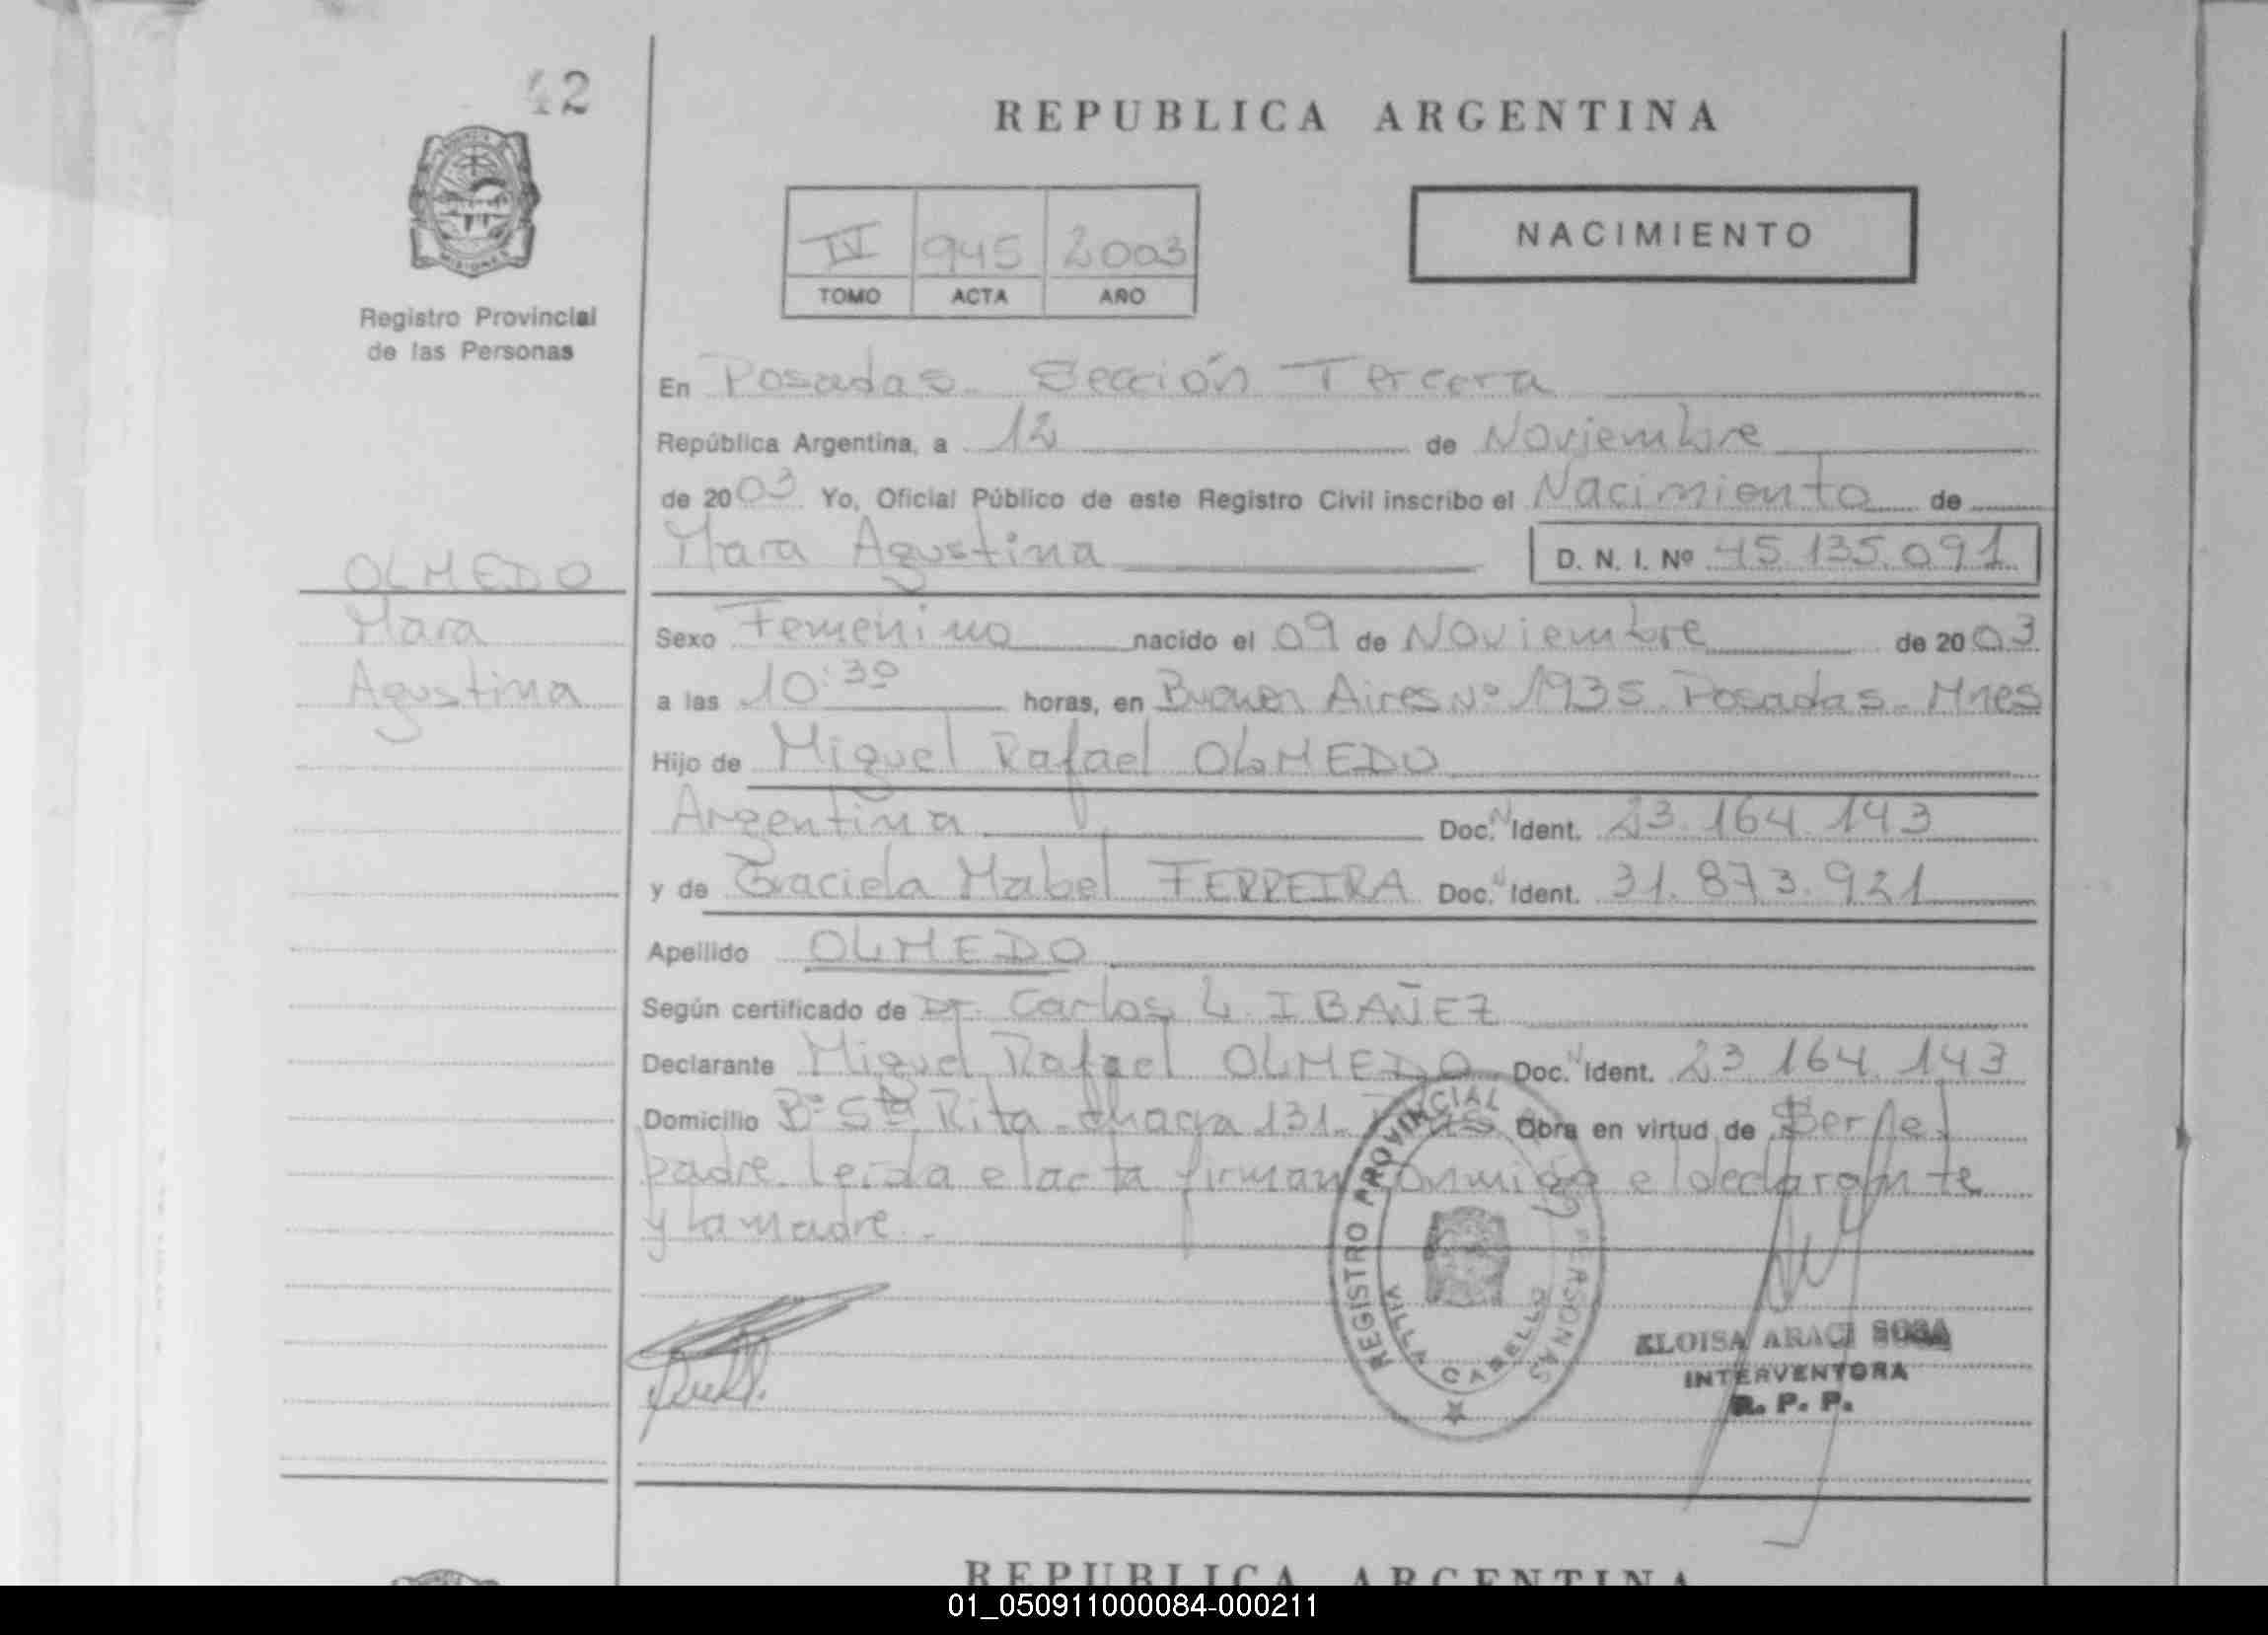 42
REPUBLICA ARGENTINA
MISIONES
Registro Provincial
de las Personas
IV 945 2003
TOMO ACTA AÑO
NACIMIENTO
En Posadas - Sección Tercera
República Argentina, a 12 de Noviembre
de 2003 Yo, Oficial Público de este Registro Civil inscribo el Nacimiento de
Mara Agustina D. N. I. Nº 45.135.091
OLMEDO
Mara
Agustina
Sexo Femenino nacido el 09 de Noviembre de 2003
a las 10:30 horas, en Buenos Aires Nº 1935 Posadas - Mnes
Hijo de Miguel Rafael OLMEDO
Argentina Doc. N Ident. 23.164.143
y de Graciela Mabel FERREIRA Doc. N Ident. 31.873.921
Apellido OLMEDO
Según certificado de Dr. Carlos L. IBAÑEZ
Declarante Miguel Rafael OLMEDO Doc. N Ident. 23.164.143
Domicilio Bº Sta Rita - chacra 131 - Obra en virtud de Ser el
padre. leida el acta firman conmigo el declarante
y la madre. -
REGISTRO PROVINCIAL PERSONAS
VILLA CABELLO
ELOISA ARACI SOSA
INTERVENTORA
R. P. P.
REPUBLICA ARGENTINA
01_050911000084-000211